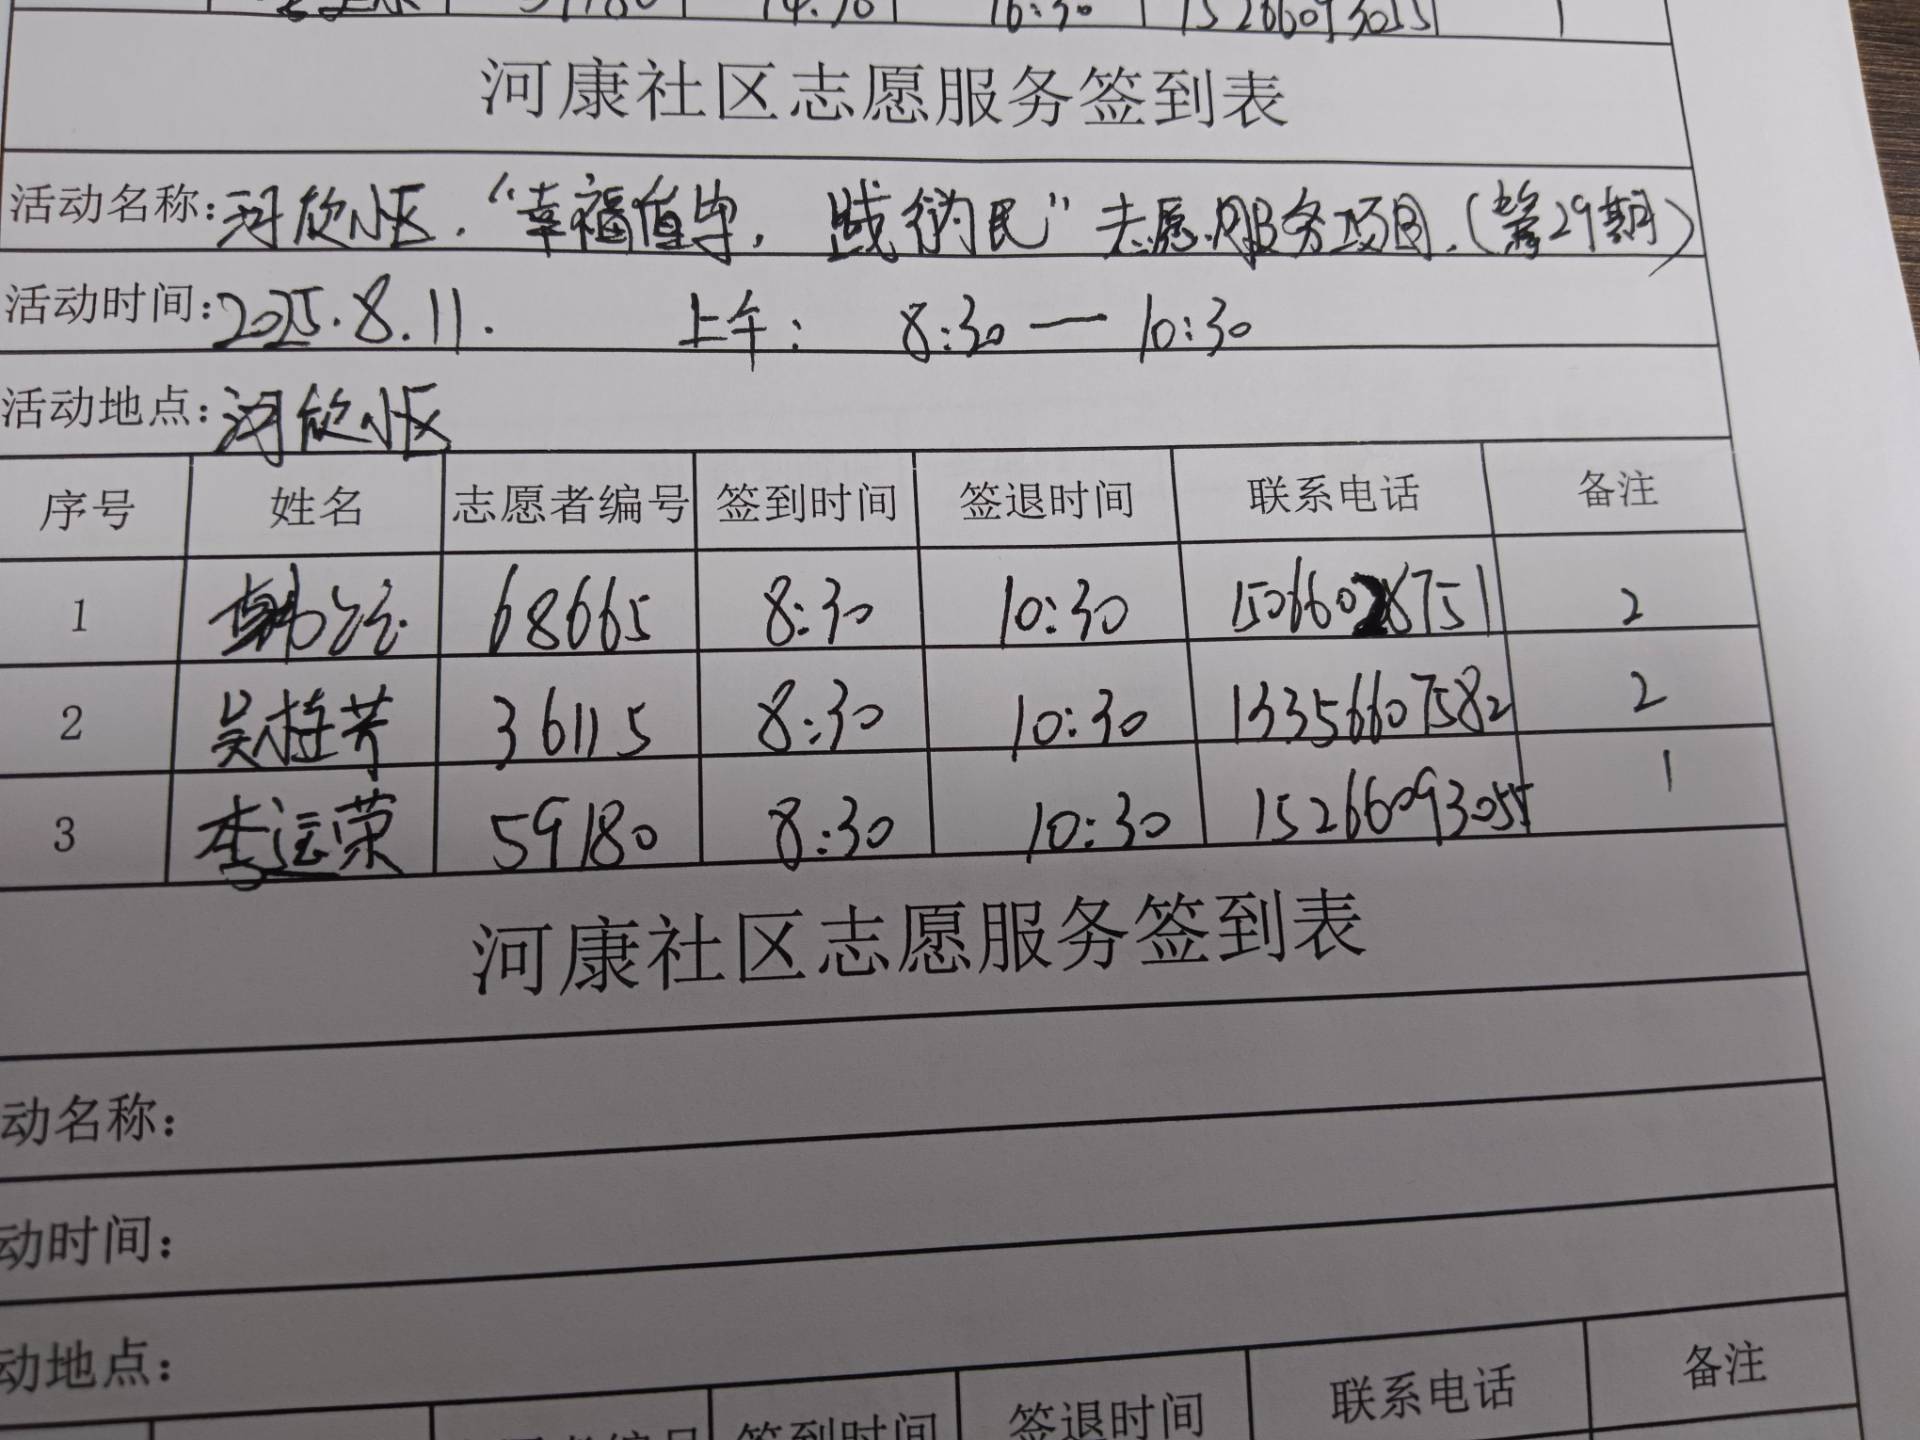 59180 14:30 16:30 15266093055 1
河康社区志愿服务签到表
活动名称:河欣小区.“幸福值守,践行为民”志愿服务项目.(第29期)
活动时间:2025.8.11. 上午: 8:30—10:30
活动地点:河欣小区
序号 姓名 志愿者编号 签到时间 签退时间 联系电话 备注
1 68665 8:30 10:30 15066028751 2
2 吴桂芳 36115 8:30 10:30 13356607582 2
3 李运荣 59180 8:30 10:30 15266093055 1
河康社区志愿服务签到表
动名称:
动时间:
动地点:
签到时间 签退时间 联系电话 备注